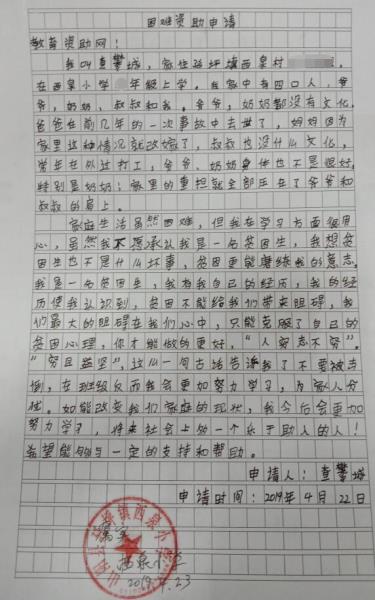 困难资助申请
教育资助网：
我叫查攀城，家住延坪镇西泉村
在西泉小学 年级上学。我家中有四口人，爷
爷，奶奶、叔叔和我。爷爷，奶奶都没有文化，
爸爸在前几年的一次事故中去世了，妈妈因为
家里这种情况就改嫁了，叔叔也没什么文化，
常年在外边打工，爷爷、奶奶身体也不是很好，
特别是奶奶；家里的重担就全部压在了爷爷和
叔叔的肩上。
家庭生活虽然困难，但我在学习方面很用
心，虽然我不愿承认我是一名贫困生，我想贫
困生也不是什么坏事，贫困更能磨练我的意志，
我是一名贫困生，我为我自己的经历，我的经
历使我认识到，贫困不能给我们带来阻碍，我
们最大的阻碍在我们心中，只能克服了自己的
贫困心理，你才能做的更好，“人穷志不穷”。
“穷且益坚”，这么一句古话告诉我了不要被击
倒，在班级反而我会更加努力学习，为家人分
忧。如能改变我们家庭的现状，我今后会更加
努力学习，将来社会上做一个乐于助人的人！
希望能够给与一定的支持和帮助。
申请人：查攀城
申请时间：2019年4月22日
属实
西泉小学
2019.4.23